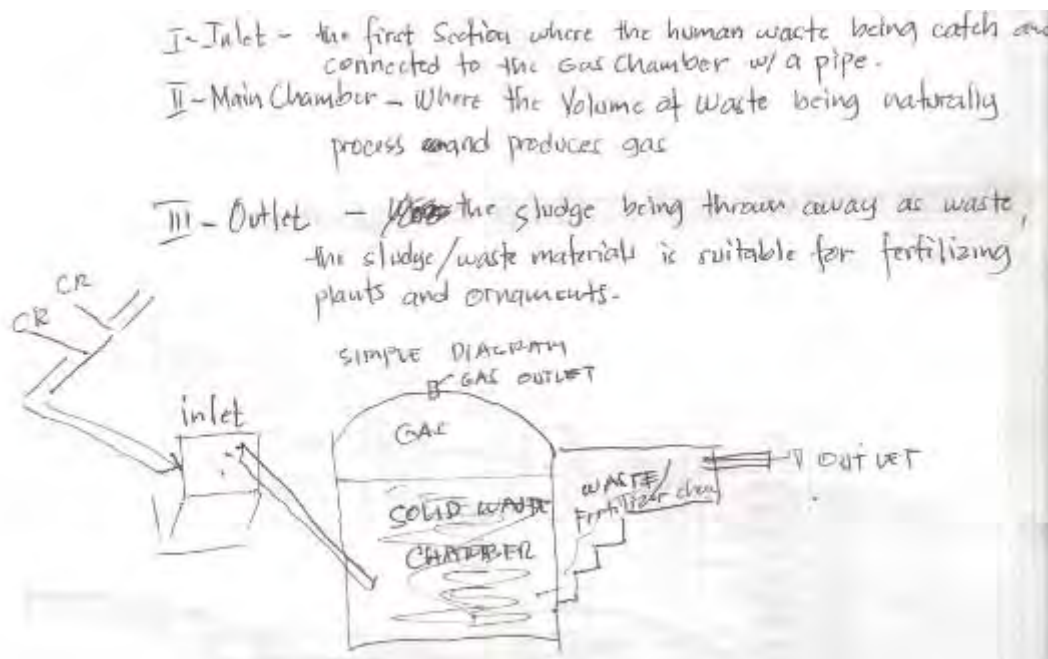 I - Inlet - the first Section where the human waste being catch and
connected to the Gas Chamber w/ a pipe.
II - Main Chamber - Where the Volume of waste being naturally
process and produces gas
III - Outlet - the sludge being thrown away as waste,
the sludge/waste materials is suitable for fertilizing
plants and ornaments.
CR
CR
SIMPLE DIAGRAM
GAS OUTLET
inlet
GAS
OUTLET
WASTE/
Fertilizer
SOLID WASTE
CHAMBER